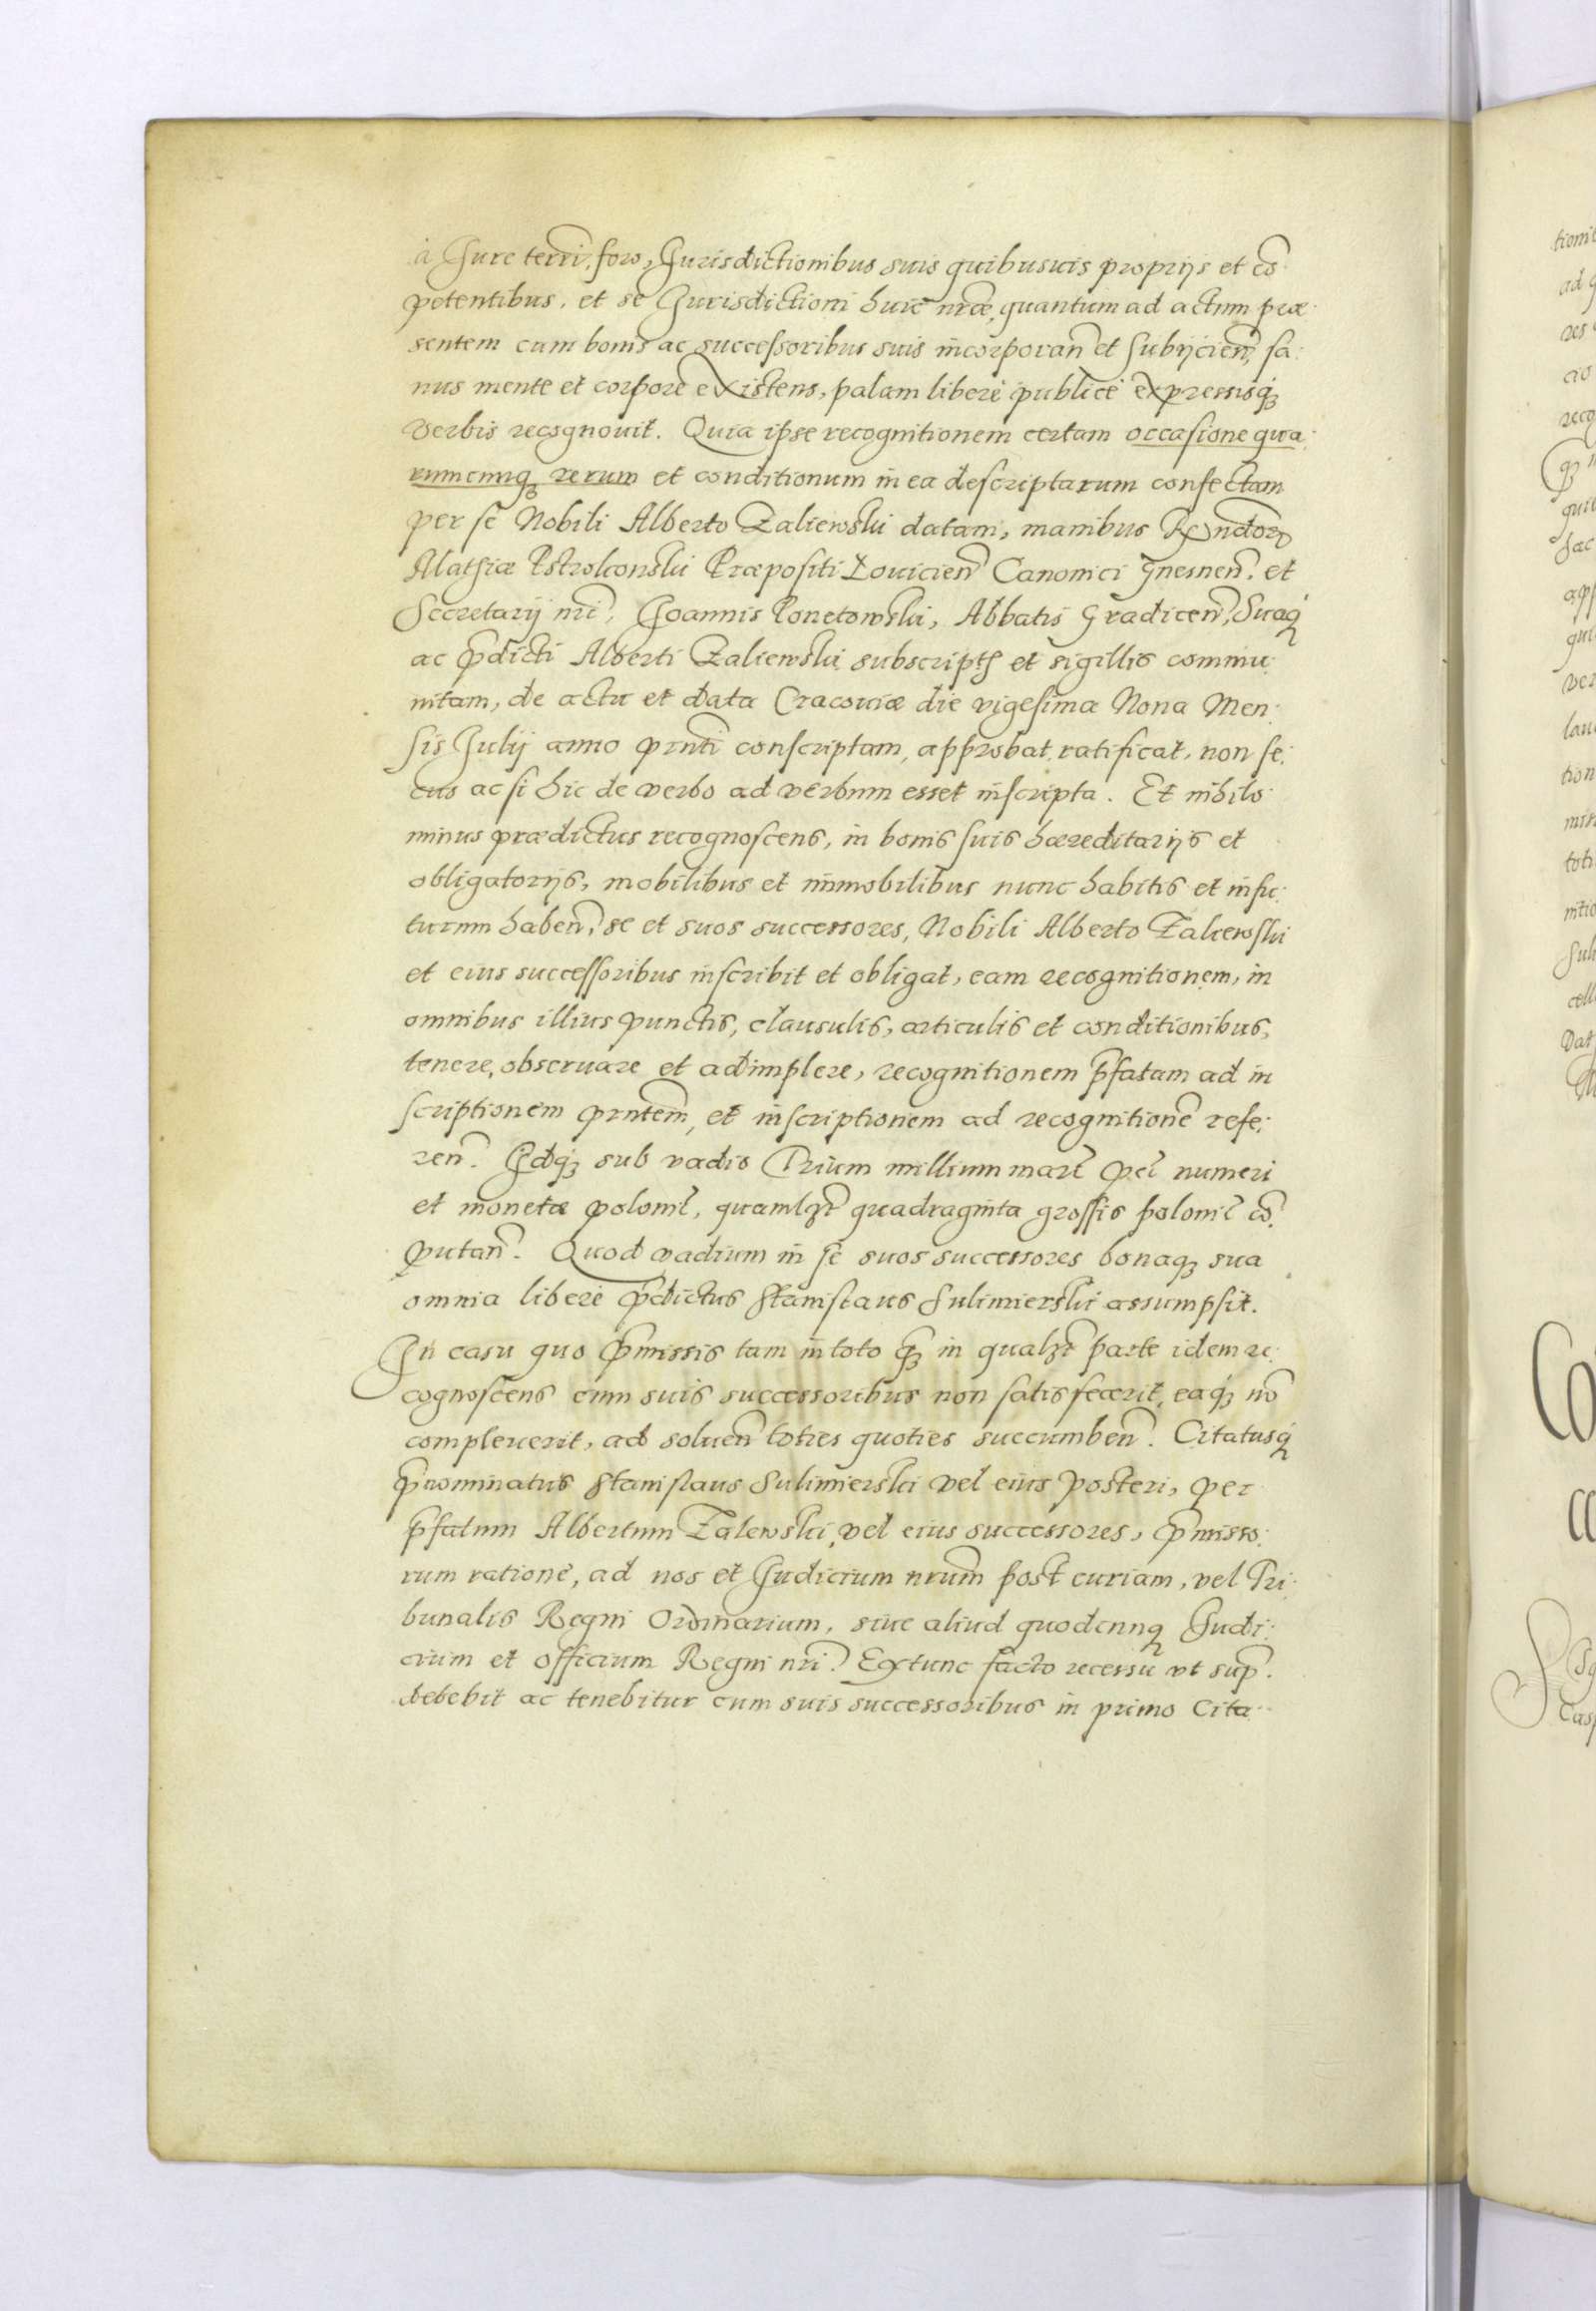 à Jure terri͠, foro, Jurisdictionibus suis quibusuis proprijs et co͠
petentibus, et se Jurisdictioni huic nr͠æ, quantum ad actum præ
sentem cum bonis ac successoribus suis incorporan͠ et subijcien͠, sa:
nus mente et corpore existens, palam liberè publicè expressisq́ꝫ
verbis recognouit. Quia ipse recognitionem certam occasione qua:
rumcunqꝫ rerum et conditionum in ea descriptarum confectam
per se Nobili Alberto Zaliewski datam, manibus
Mathiæ Pstrokonski Præpositi Louicien͠ Canonici Gnesnen͠. et
Secretarij nri͠, Joannis Konetowski, Abbatis Gradicen͠, Suaq́ꝫ
ac p͠dicti Alberti Zaliewski subscript͠ et sigillis commu:
nitam, de actu et data Cracouiæ die vigesima Nona Men:
sis Julij anno prnti͠ conscriptam, approbat ratificat, non se:
cus ac si hic de verbo ad verbum esset inscripta. Et nihilo
minus prædictus recognoscens, in bonis suis hæreditarijs et
obligatorijs, mobilibus et immobilibus nunc habitis et infu:
turum haben͠, se et suos successores, Nobili Alberto Zalewski
et eius successoribus inscribit et obligat, eam recognitionem, in
omnibus illius punctis, clausulis, articulis et conditionibus,
tenere, obseruare et adimplere, recognitionem p͠fatam ad in
scriptionem prntem͠, et inscriptionem ad recognitione͠ refe:
ren͠. Idq́ꝫ sub vadio Trium millium mar͠ pec͠ numeri
et monetæ polonic͠, quamlꝫt͠ quadraginta grossis polonic͠ co͠
putan͠. Quod vadium in se suos successores bonaqꝫ sua
omnia liberè p͠dictus Stanislaus Sulimierski assumpsit.
In casu quo p͠missis tam in toto q͠ꝫ in qualꝫt͠ parte idem re:
cognoscens cum suis successoribus non satisfecerit, eaq́ꝫ no͠
compleuerit, ad soluen͠ toties quoties succumben͠. Citatusq́ꝫ
p͠nominatus Stanislaus Sulimierski vel eius posteri, per
p͠fatum Albertum Zalewski, vel eius successores, p͠misso:
rum ratione, ad nos et Judicium nrum͠ post curiam, vel Tri:
bunalis Regni Ordinarium, siue aliud quodcunqꝫ Judi:
cium et officium Regni nri͠. Extunc facto recessu vt sup͠.
debebit ac tenebitur cum suis successoribus in primo Cita: